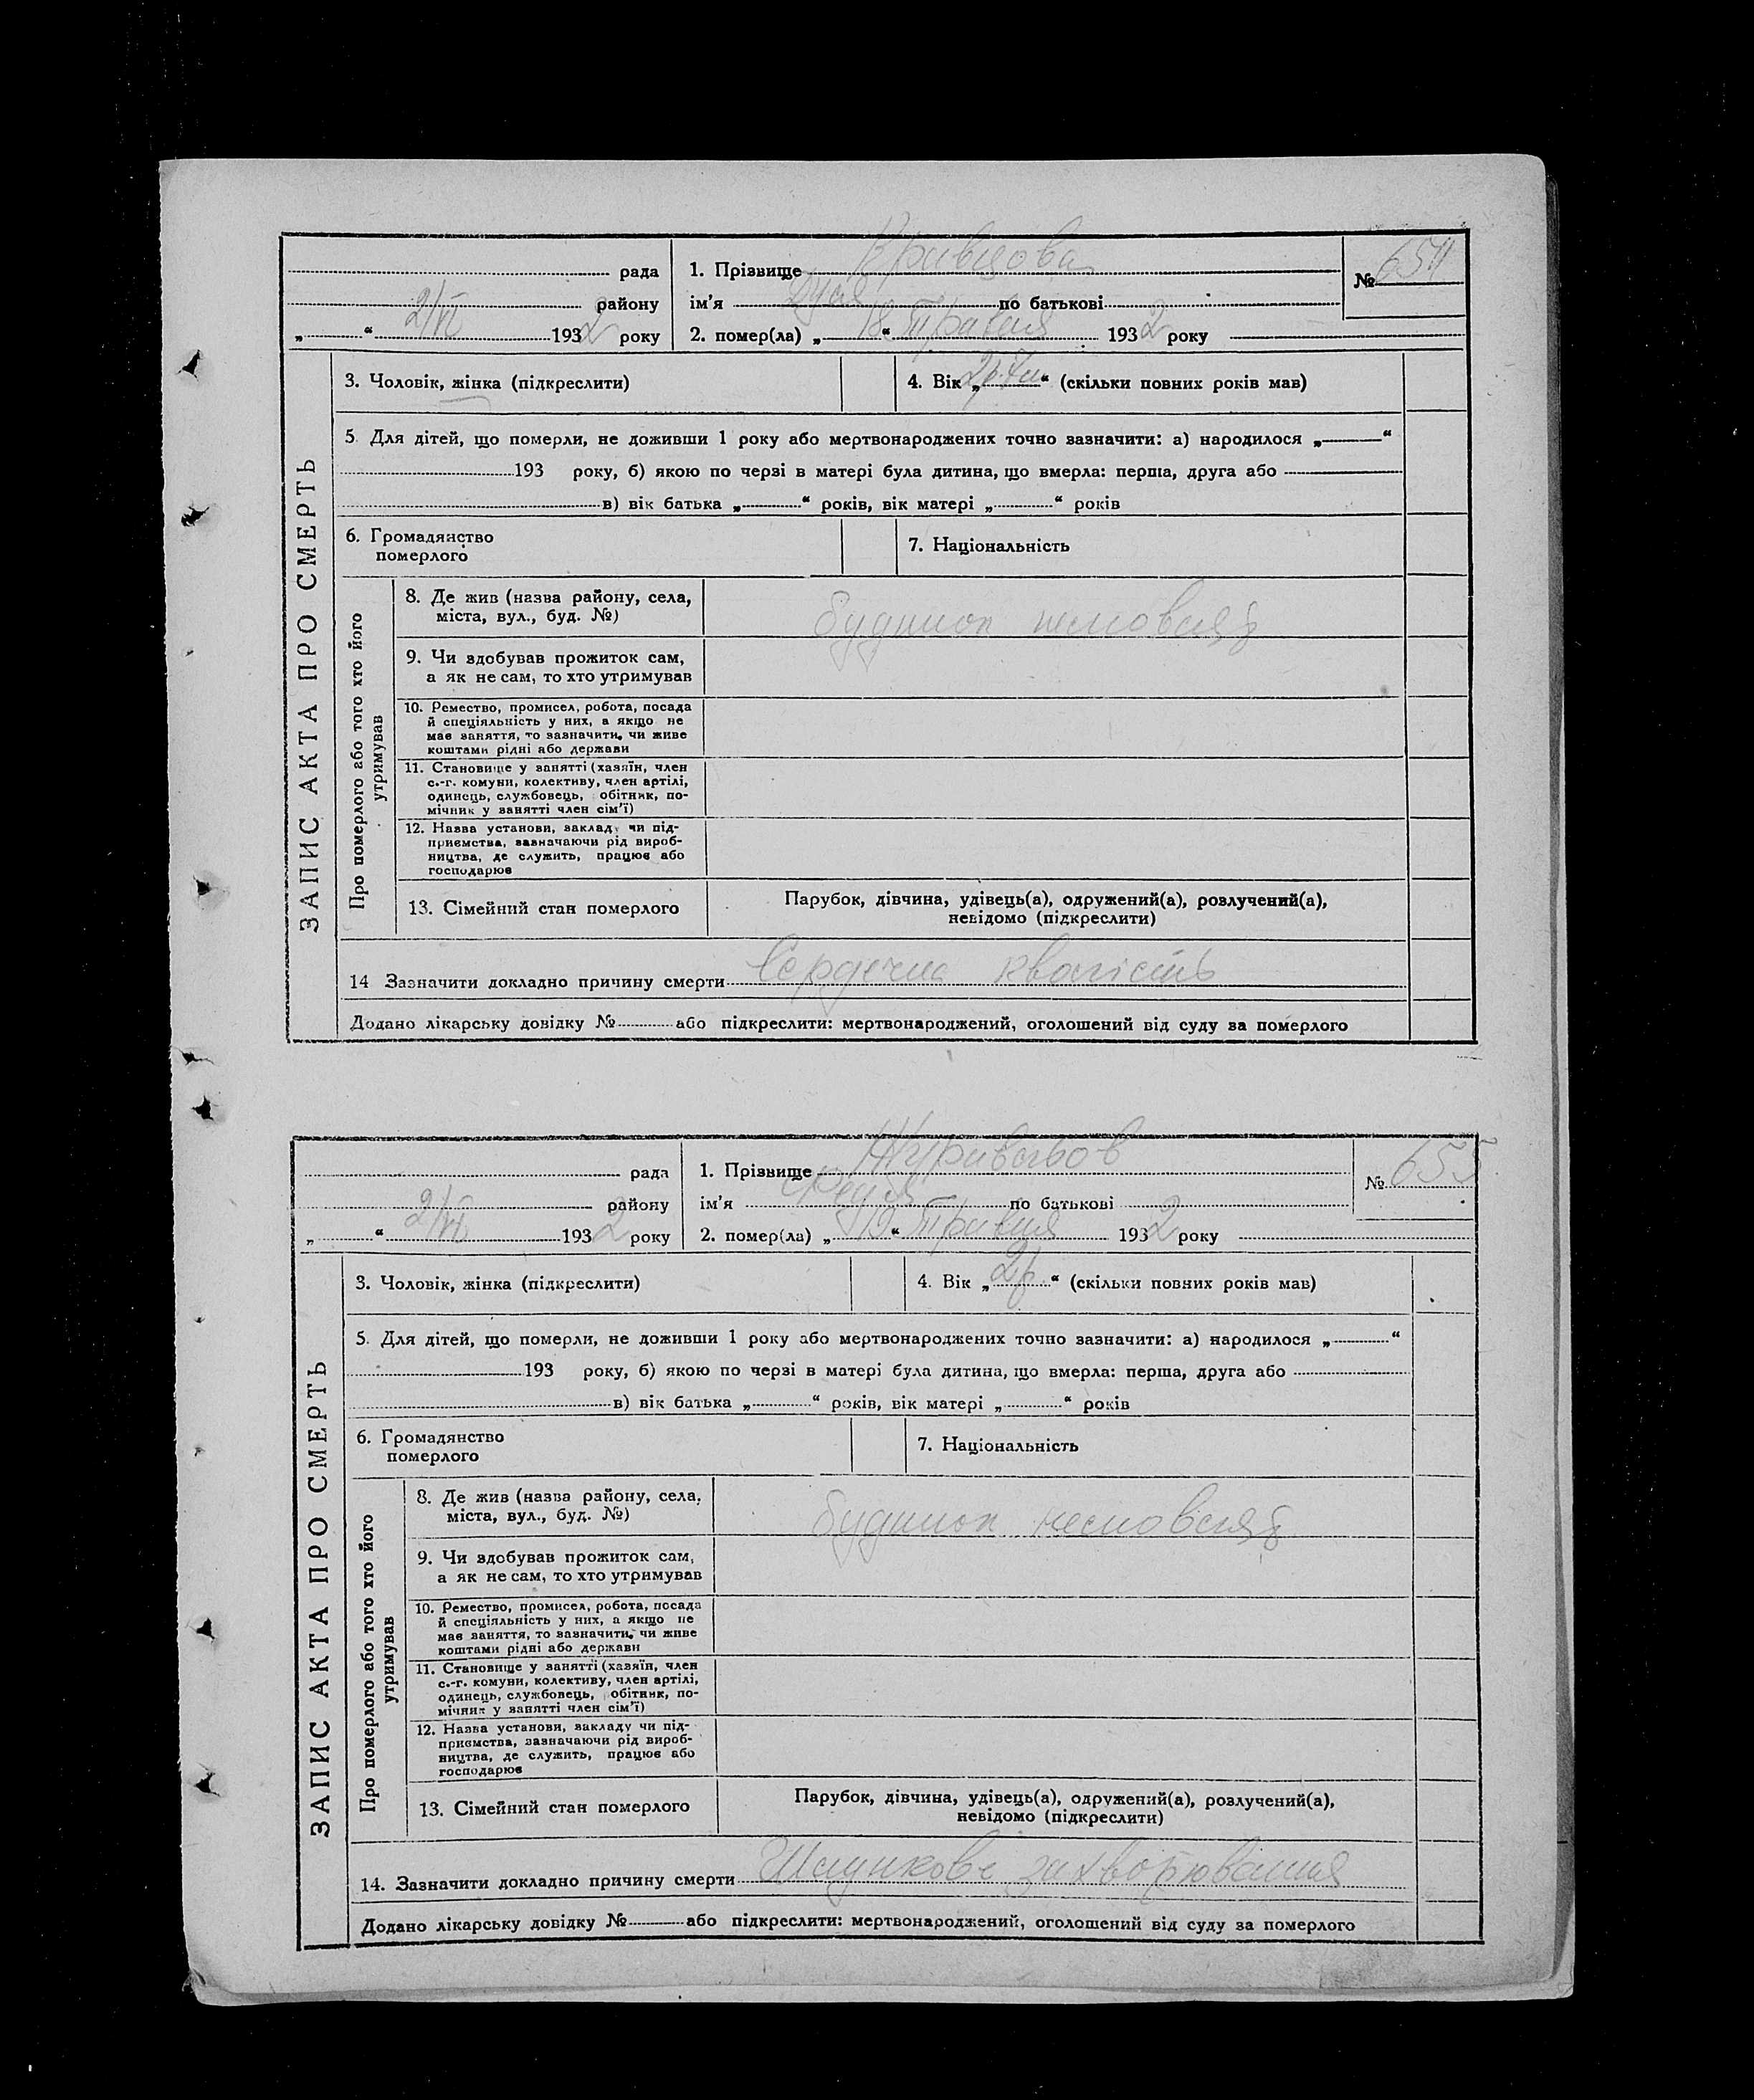 рада
1. Прізвище Кравцова
№ 654
району
ім'я Дуся по батькові
„ “ 2/VI 1932 року
2. помер(ла) „18“ Травня 1932 року
ЗАПИС АКТА ПРО СМЕРТЬ
3. Чоловік, жінка (підкреслити)
4. Вік „2р. 7м.“ (скільки повних років мав)
5. Для дітей, що померли, не доживши 1 року або мертвонароджених точно зазначити: а) народилося „ “
193 року, б) якою по черзі в матері була дитина, що вмерла: перша, друга або
в) вік батька „ “ років, вік матері „ “ років
6. Громадянство
померлого
7. Національність
Про померлого або того хто його
утримував
8. Де жив (назва району, села,
міста, вул., буд. №)
будинок немовлят
9. Чи здобував прожиток сам,
а як не сам, то хто утримував
10. Ремество, промисел, робота, посада
й спеціяльність у них, а якщо не
має заняття, то зазначити, чи живе
коштами рідні або держави
11. Становище у занятті (хазяїн, член
с.-г. комуни, колективу, член артілі,
одинець, службовець, обітник, по-
мічник у занятті член сім'ї)
12. Назва установи, закладу чи під-
приємства, зазначаючи рід вироб-
ництва, де служить, працює або
господарює
13. Сімейний стан померлого
Парубок, дівчина, удівець(а), одружений(а), розлучений(а),
невідомо (підкреслити)
14 Зазначити докладно причину смерти Сердечна квалість
Додано лікарську довідку № або підкреслити: мертвонароджений, оголошений від суду за померлого
рада
1. Прізвище Журавльов
№ 655
району
ім'я Федя по батькові
„ “ 2/VI 1932 року
2. помер(ла) „19“ Травня 1932 року
ЗАПИС АКТА ПРО СМЕРТЬ
3. Чоловік, жінка (підкреслити)
4. Вік „2р.“ (скільки повних років мав)
5. Для дітей, що померли, не доживши 1 року або мертвонароджених точно зазначити: а) народилося „ “
193 року, б) якою по черзі в матері була дитина, що вмерла: перша, друга або
в) вік батька „ “ років, вік матері „ “ років
6. Громадянство
померлого
7. Національність
Про померлого або того хто його
утримував
8. Де жив (назва району, села,
міста, вул., буд. №)
будинок немовлят
9. Чи здобував прожиток сам,
а як не сам, то хто утримував
10. Ремество, промисел, робота, посада
й спеціяльність у них, а якщо не
має заняття, то зазначити, чи живе
коштами рідні або держави
11. Становище у занятті (хазяїн, член
с.-г. комуни, колективу, член артілі,
одинець, службовець, обітник, по-
мічник у занятті член сім'ї)
12. Назва установи, закладу чи під-
приємства, зазначаючи рід вироб-
ництва, де служить, працює або
господарює
13. Сімейний стан померлого
Парубок, дівчина, удівець(а), одружений(а), розлучений(а),
невідомо (підкреслити)
14. Зазначити докладно причину смерти Шлункове захворювання
Додано лікарську довідку № або підкреслити: мертвонароджений, оголошений від суду за померлого